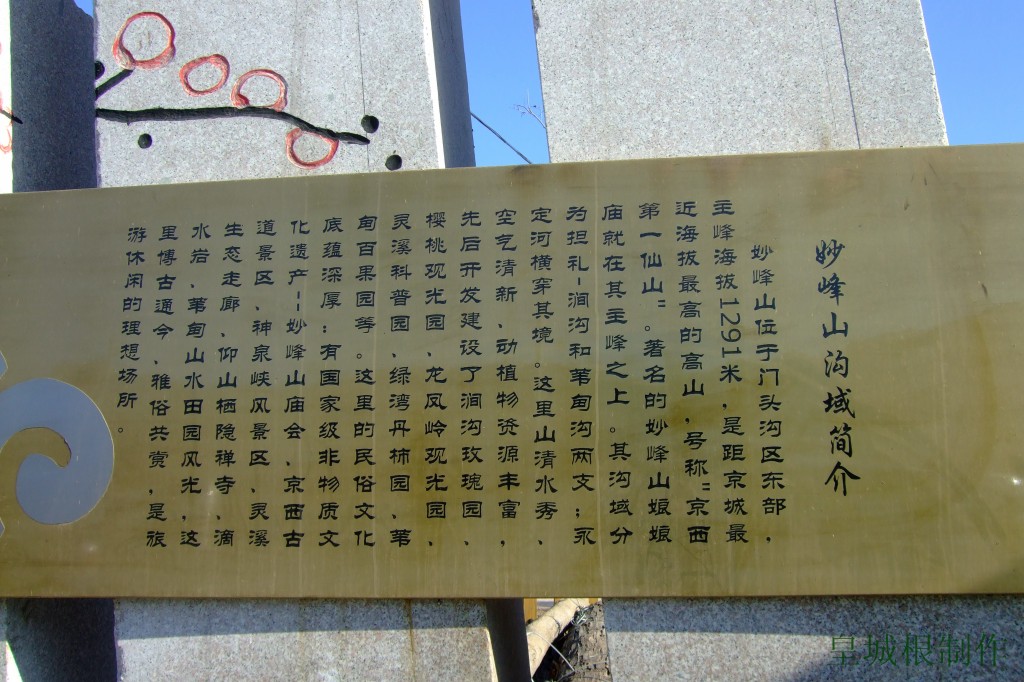 妙峰山沟域简介
妙峰山位于门头沟区东部，
主峰海拔1291米，是距京城最
近海拔最高的高山，号称"京西
第一仙山"。著名的妙峰山娘娘
庙就在其主峰之上。其沟域分
为担礼-涧沟和苇甸沟两支；永
定河横穿其境。这里山清水秀、
空气清新、动植物资源丰富，
先后开发建设了涧沟玫瑰园、
樱桃观光园、龙凤岭观光园、
灵溪科普园、绿湾丹柿园、苇
甸百果园等。这里的民俗文化
底蕴深厚；有国家级非物质文
化遗产--妙峰山庙会、京西古
道景区、神泉峡风景区、灵溪
生态走廊、仰山栖隐禅寺、滴
水岩、苇甸山水田园风光，这
里博古通今、雅俗共赏，是旅
游休闲的理想场所。
皇城根制作